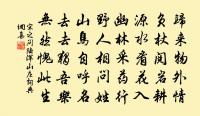 歸来物外情
負杖閱岩耕
源水看花入
幽林采藥行
野人相問姓
山鳥自呼名
去去獨吾樂
無能愧此生
宋之問陸渾山庄詞典
網